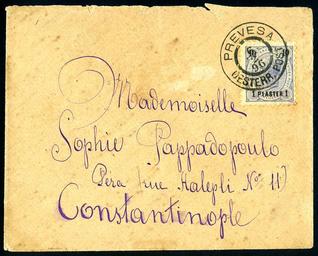 PREVESA
96
OESTERR. POST
1 PIASTER 1
Mademoiselle
Sophie Pappadopoulo
Pera rue Halepli N° 11
Constantinople